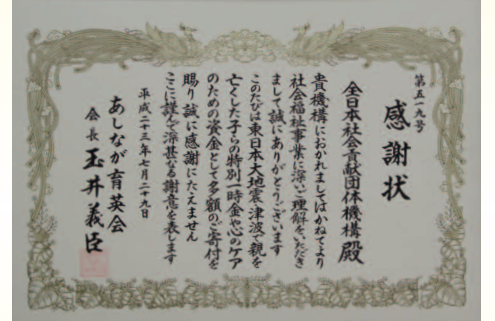 第五一九号
感謝状
全日本社会貢献団体機構殿
貴機構におかれましてはかねてより
社会福祉事業に深いご理解をいただき
まして誠にありがとうございます
このたびは東日本大地震・津波で親を
亡くした子らの特別一時金や心のケア
のための資金として多額のご寄付を
賜り誠に感謝にたえません
ここに謹んで深甚なる謝意を表します
平成二十三年七月二十九日
あしなが育英会
会長 玉井義臣